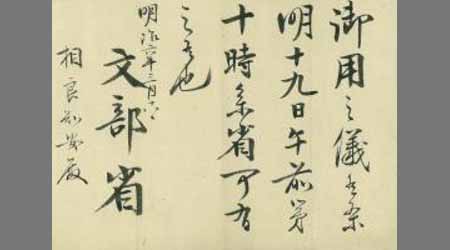 御用之儀有之条
明十九日午前第
十時参省可有
之者也
明治六年三月十八日
文部省
相良知安殿